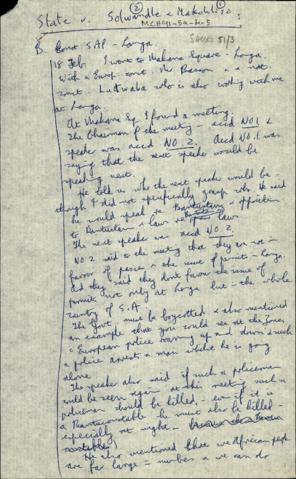 State v. Solwandle & Makohliso.
B Const. SAP - Langa
18 Feb. I went to Makana Square - Langa
with a Europ. const. Mr Basson & a nat.
const. Lutwaba who is also working with me
at Langa.
At Makana Sq. I found a meeting.
The Chairman of the meeting - accd NO 1 &
speaker was accd NO. 2. Accd No. 1 was
saying that the next speaker would be
speaking next.
He told us who the next speaker would be -
though I did not specifically grasp who. He said
he would speak
to Bantustan laws
The next speaker was Accd NO 2.
NO 2 said to the meeting that they are not in
favour of passes & the issue of permits - Langa.
And they said they don't favour the issue of
permits not only at Langa but - the whole
country of S.A.
The Govt. must be boycotted & also mentioned
an example that you could see at the Zones
a European police moving up and down such
a police arrest a man whilst he is going
alone.
The speaker also said if such a policeman
could be seen again at this meeting such a
policeman should be killed - even if it is
a Bantu constable he must also be killed -
especially at night -
He also mentioned that we African people
are far large in number & we can do